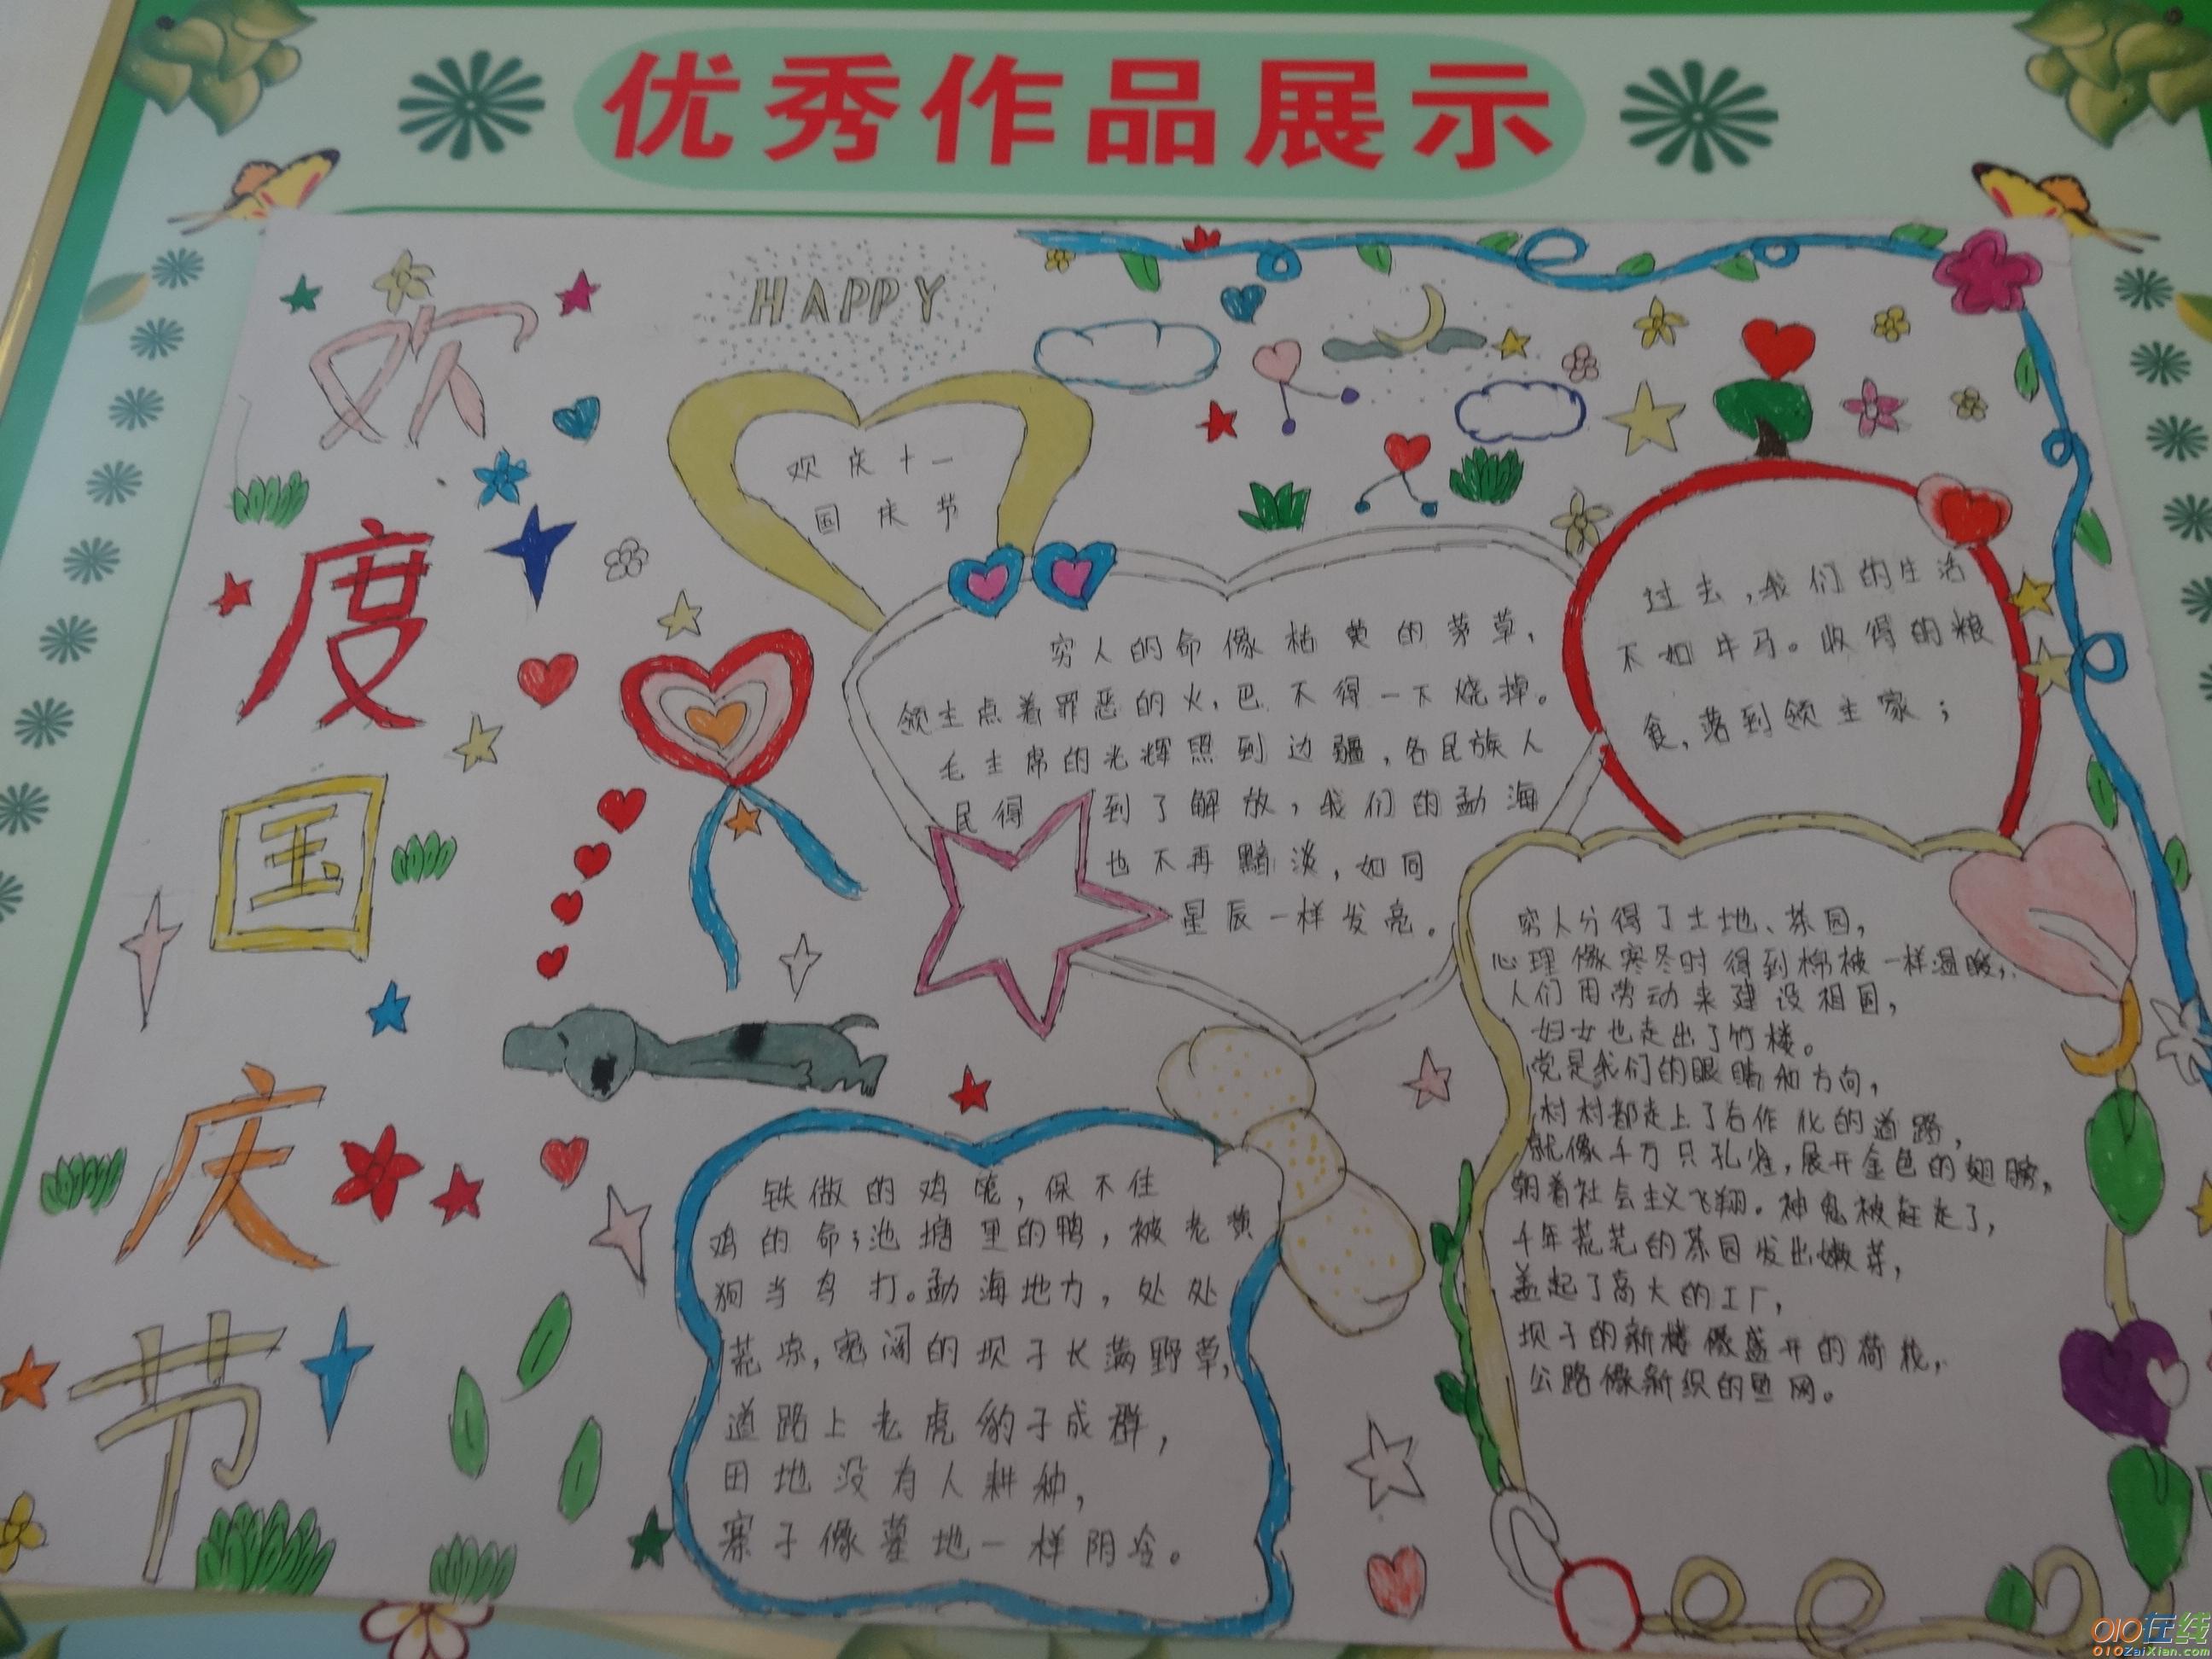 优秀作品展示
欢度国庆节
HAPPY
欢庆十一
国庆节
穷人的命像枯黄的茅草，
领主点着罪恶的火，巴不得一下烧掉。
毛主席的光辉照到边疆，各民族人
民得到了解放，我们的勐海
也不再黯淡，如同
星辰一样发亮。
过去，我们的生活
不如牛马。收得的粮
食，落到领主家；
铁做的鸡笼，保不住
鸡的命；池塘里的鸭，被老黄
狗当鸟打。勐海地方，处处
荒凉，宽阔的坝子长满野草，
道路上老虎豹子成群，
田地没有人耕种，
寨子像墓地一样阴冷。
穷人分得了土地、茶园，
心理像寒冬时得到棉被一样温暖，
人们用劳动来建设祖国，
妇女也走出了竹楼。
党是我们的眼睛和方向，
村村都走上了合作化的道路，
就像千万只孔雀，展开金色的翅膀，
朝着社会主义飞翔。神鬼被赶走了，
千年荒芜的茶园发出嫩芽，
盖起了高大的工厂，
坝子的新楼像盛开的荷花，
公路像新织的鱼网。
010在线
010ZaiXian.com